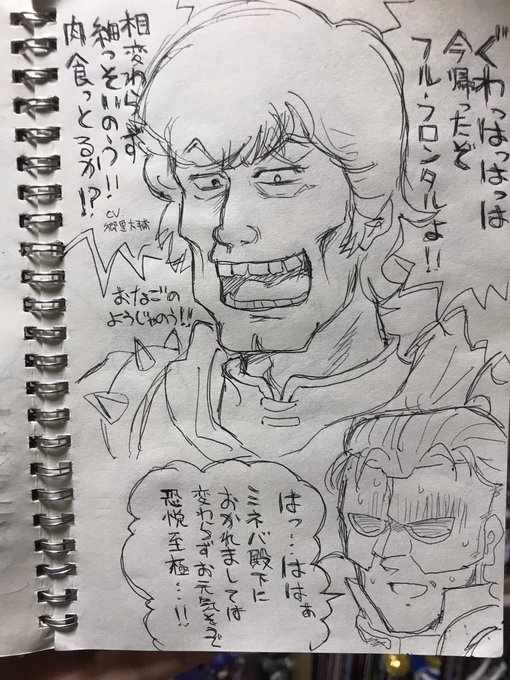 ぐわっはっはっは
今帰ったぞ
フル・フロンタルよ!!
相変わらず
細っそいのう!!
肉食っとるか!?
CV
郷里大輔
おなごの
ようじゃのう!!
はっ…ははぁ
ミネバ殿下に
おかれましては
変わらずお元気そうで
恐悦至極…!!